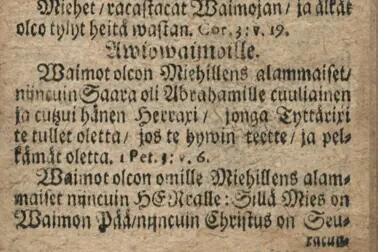 Miehet / racastacat Waimojan / ja älkät
olco tylyt heitä wastan. Cor. 3: v. 19.
Awiowaimoille.
Waimot olcon Miehillens alammaiset /
nijncuin Saara oli Abrahamille cuuliainen
ja cuzui hänen Herraxi / jonga Tyttärixi
te tullet oletta / jos te hywin teette / ja pel-
kämät oletta. 1 Pet. 3: v. 6.
Waimot olcon omille Miehillens alam-
maiset nijncuin HERralle: Sillä Mies on
Waimon Pää / nijncuin Christus on Seu-
racun-